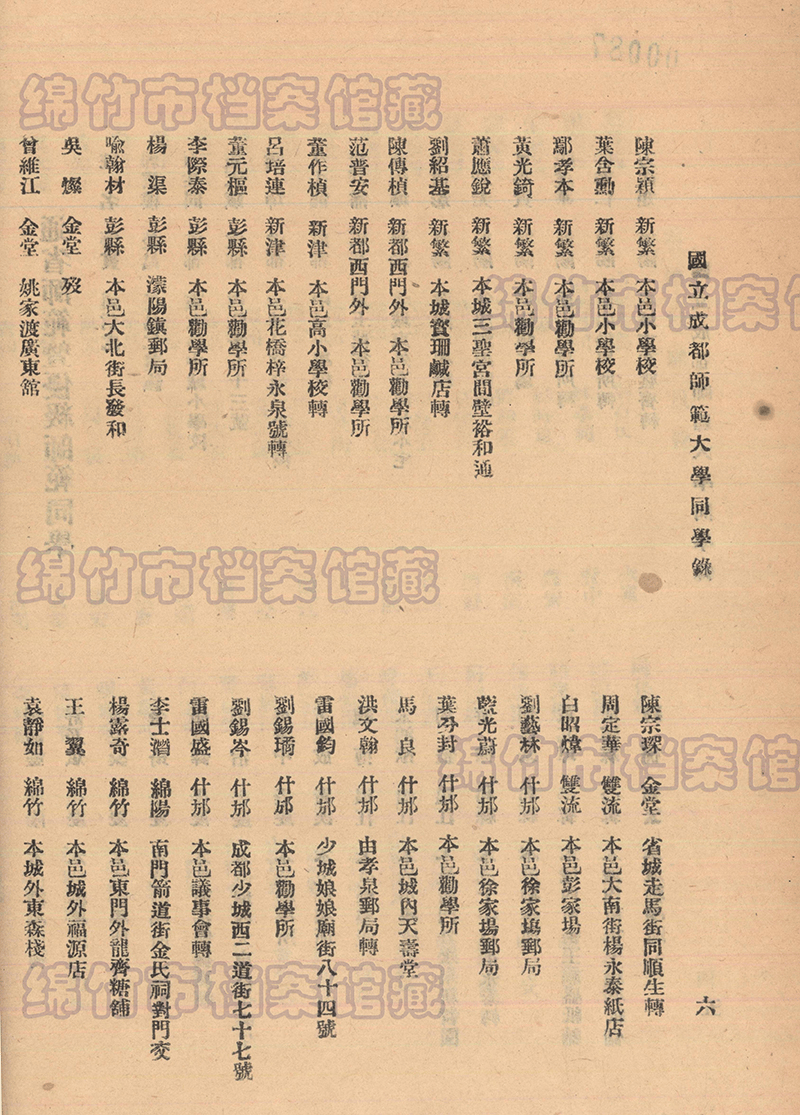 00087
國立成都師範大學同學錄
六
陳宗穎 新繁 本邑小學校
葉含勳 新繁 本邑小學校
鄢孝本 新繁 本邑勸學所
黃光錡 新繁 本邑勸學所
蕭應銳 新繁 本城三聖宮間壁裕和通
劉紹基 新繁 本城寶珊鹹店轉
陳傳楨 新都西門外 本邑勸學所
范晋安 新都西門外 本邑勸學所
董作楨 新津 本邑高小學校轉
呂培連 新津 本邑花橋梓永泉號轉
董元樞 彭縣 本邑勸學所
李際泰 彭縣 本邑勸學所
楊渠 彭縣 濛陽鎮郵局
喻翰材 彭縣 本邑大北街長發和
吳燦 金堂 歿
曾維江 金堂 姚家渡廣東館
陳宗琛 金堂 省城走馬街同順生轉
周定華 雙流 本邑大南街楊永泰紙店
白昭煒 雙流 本邑彭家場
劉藝林 什邡 本邑徐家塲郵局
藍光蔚 什邡 本邑徐家場郵局
葉芬封 什邡 本邑勸學所
馬良 什邡 本邑城內天壽堂
洪文翰 什邡 由孝泉郵局轉
雷國鈞 什邡 少城娘娘廟街八十四號
劉錫璚 什邡 本邑勸學所
劉錫岑 什邡 成都少城西二道街七十七號
雷國盛 什邡 本邑議事會轉
李士潛 綿陽 南門箭道街金氏祠對門交
楊露奇 綿竹 本邑東門外龍齊糖舖
王翼 綿竹 本邑城外福源店
袁靜如 綿竹 本城外東森棧
绵竹市档案馆藏
绵竹市档案馆藏
绵竹市档案馆藏
绵竹市档案馆藏
绵竹市档案馆藏